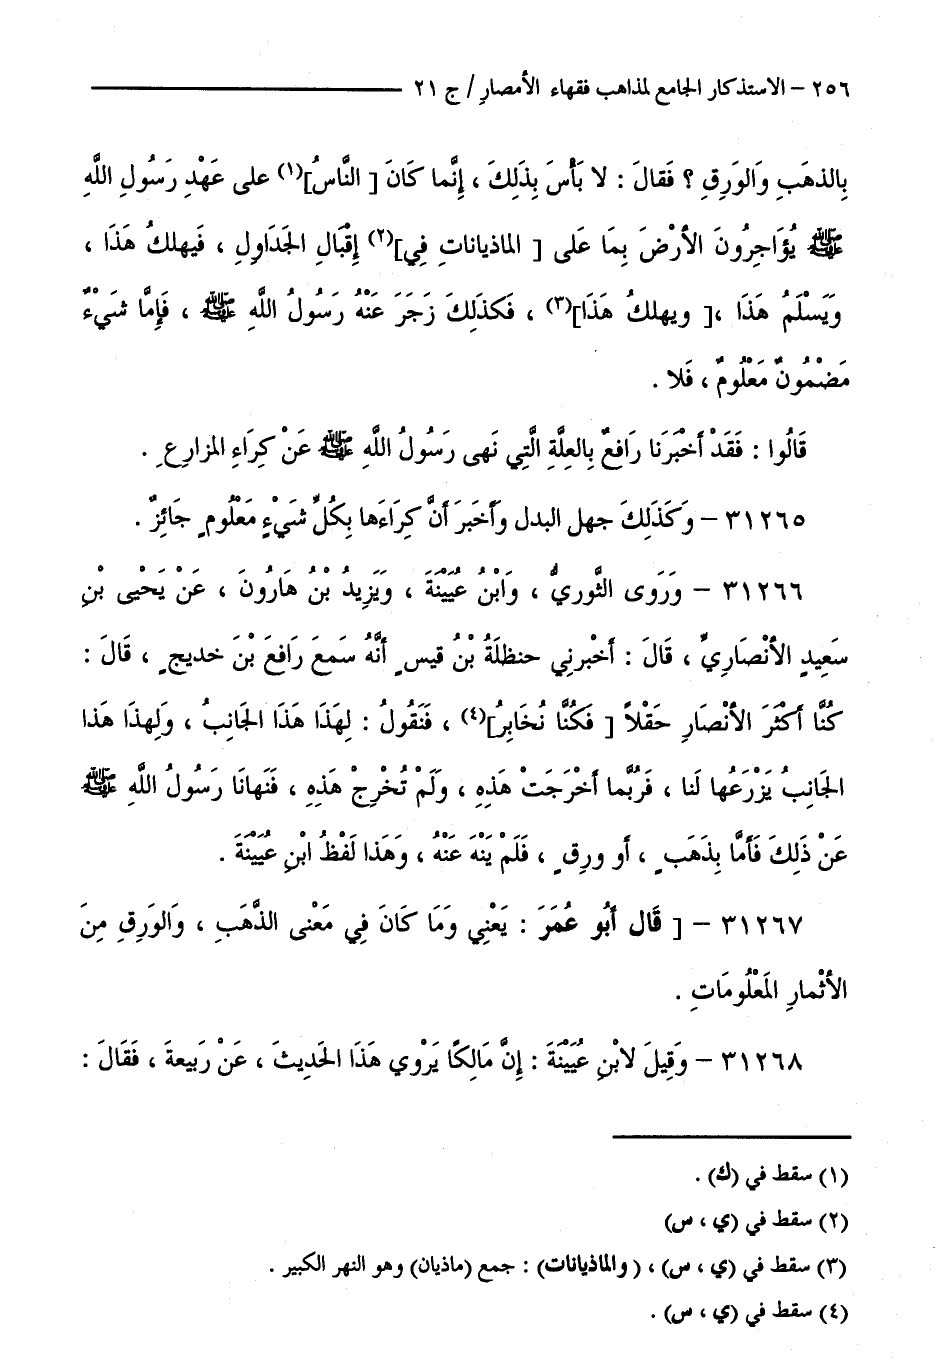 ٢٥٦ – الاستذكار الجامع لمذاهب فقهاء الأمصارِ / ج ٢١
بِالذهَبِ وَالوَرِقِ ؟ فَقالَ : لا بَأْسَ بِذَلِكَ ، إِنَّما كَانَ [ النَّاسُ](١) على عَهْدِ رَسُولِ اللَّهِ
ﷺ يُؤَاجِرُونَ الأرْضَ بِمَا عَلى [ الماذيانات فِي](٢) إِقْبَالِ الجَدَاوِلِ ، فَيهلكُ هَذَا ،
وَيَسْلَمُ هَذَا ،[ ويهلكُ هَذَا](٣) ، فَكذلكَ زَجَرَ عَنْهُ رَسُولُ اللَّهِ ﷺ ، فَإِمَّا شَيْءٌ
مَضْمُونٌ مَعْلُومٌ ، فَلا .
قَالُوا : فَقَدْ أَخْبَرَنَا رَافعٌ بِالعِلَّةِ الَّتِي نَهى رَسُولُ اللَّهِ ﷺ عَنْ كِرَاءِ المزارِعِ .
٣١٢٦٥ – وَكَذَلِكَ جهل البدل وَأَخبَرَ أَنَّ كِرَاءَها بِكُلِّ شَيْءٍ مَعْلُومٍ جَائِزٌ .
٣١٢٦٦ – وَرَوى الثَّوريُّ ، وَابْنُ عُيَيْنَةَ ، وَيَزِيدُ بْنُ هَارُونَ ، عَنْ يَحْيى بْنِ
سَعِيدٍ الأنْصَارِيِّ ، قَالَ : أَخْبرنِي حنظلَةُ بْنُ قيسٍ أنَّهُ سَمعَ رَافعَ بْنَ خديجٍ ، قَالَ :
كُنَّا أَكْثَرَ الأنْصَارِ حَقْلاً [ فَكُنَّا نُخَابِرُ](٤) ، فَنَقُولُ : لِهَذَا هَذَا الجَانِبُ ، وَلِهذَا هَذا
الجَانِبُ يَزْرَعُها لَنا ، فَرُبَّما أَخْرَجَتْ هَذِهِ ، وَلَمْ تُخْرِجْ هَذِهِ ، فَنَهانَا رَسُولُ اللَّهِ ﷺ
عَنْ ذَلِكَ فَأَمَّا بِذَهَبٍ ، أو ورِقٍ ، فَلَمْ يَنْهَ عَنْهُ ، وَهَذا لَفْظُ ابْنِ عُيَيْنَةَ .
٣١٢٦٧ – [ قَال أَبُو عُمَرَ : يَعْنِي وَمَا كَانَ فِي مَعْنى الذَّهَبِ ، وَالوَرِقِ مِنَ
الأثْمارِ المَعْلُومَاتِ .
٣١٢٦٨ – وَقِيلَ لابْنِ عُيَيْنَةَ : إِنَّ مَالِكًا يَرْوي هَذَا الحَديثَ ، عَنْ رَبيعةَ ، فَقَالَ :
(١) سقط في (ك) .
(٢) سقط في (ي ، س)
(٣) سقط في (ي ، س) ، (والماذيانات) : جمع (ماذيان) وهو النهر الكبير .
(٤) سقط في (ي ، س) .